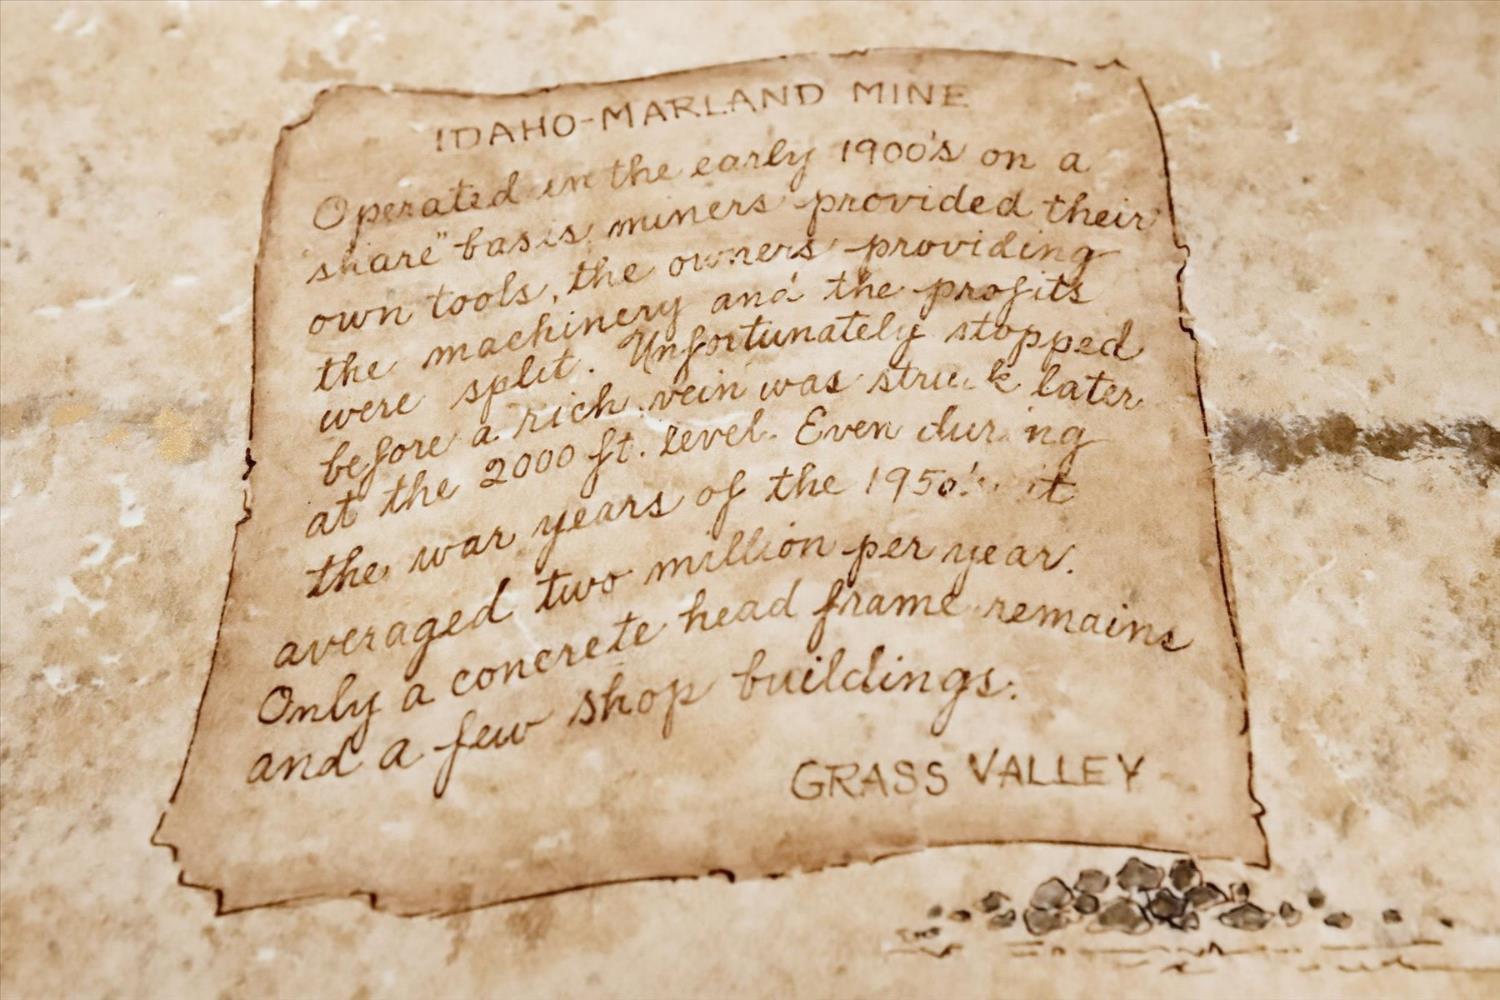 IDAHO-MARLAND MINE
Operated in the early 1900's on a
"share" basis miners provided their
own tools, the owners providing
the machinery and the profits
were split. Unfortunately stopped
before a rich vein was struck later
at the 2000 ft. level. Even during
the war years of the 1950's it
averaged two million per year.
Only a concrete head frame remains
and a few shop buildings.
GRASS VALLEY